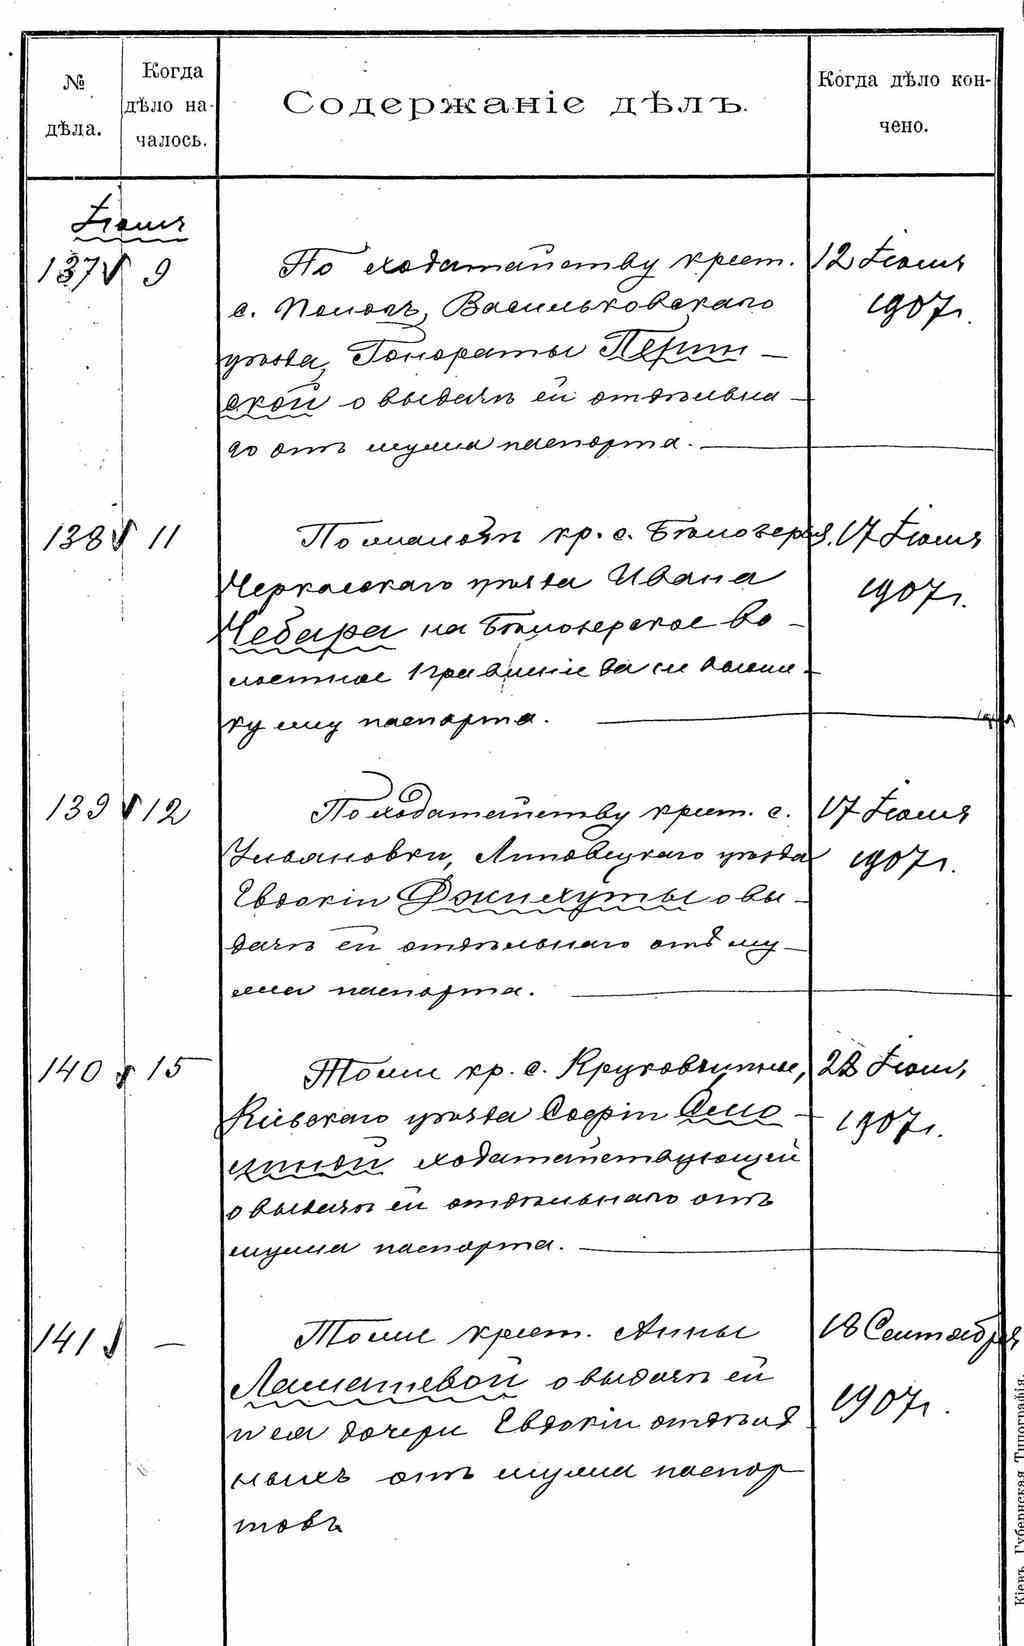 № дѣла.
Когда дѣло началось.
Содержаніе дѣлъ.
Когда дѣло кончено.
Іюля
137 9
По ходатайству крест.
с. Пологъ, Васильковскаго
уѣзда, Гонораты
ской о выдачѣ ей отдѣльна-
го отъ мужа паспорта.
12 Іюля
1907 г.
138 11
По жалобѣ кр. с. Бѣлозерья,
Черкасскаго уѣзда Ивана
Чебара на Бѣлозерское Во-
лостное Правленіе за не высыл-
ку ему паспорта.
17 Іюля
1907 г.
139 12
По ходатайству крест. с.
Ульяновки, Липовецкаго уѣзда
Евдокіи Джихуты о вы-
дачѣ ей отдѣльнаго отъ му-
жа паспорта.
17 Іюля
1907 г.
140 15
Тоже кр. с. Круковщины,
Кіевскаго уѣзда Софіи
ходатайствующей
о выдачѣ ей отдѣльнаго отъ
мужа паспорта.
Іюля
1907 г.
141 —
Тоже крест. Анны
о выдачѣ ей
и ея дочери Евдокіи отдѣль
ныхъ отъ мужа паспор
товъ
18 Сентября
1907 г.
Кіевъ. Губернская Типографія.